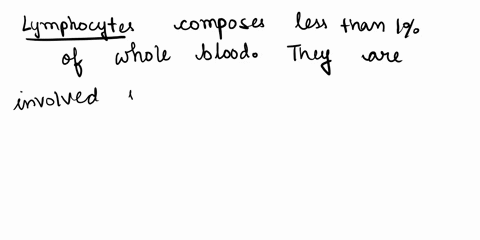 Lymphocytes composes less than 1%
of whole blood. They are
involved